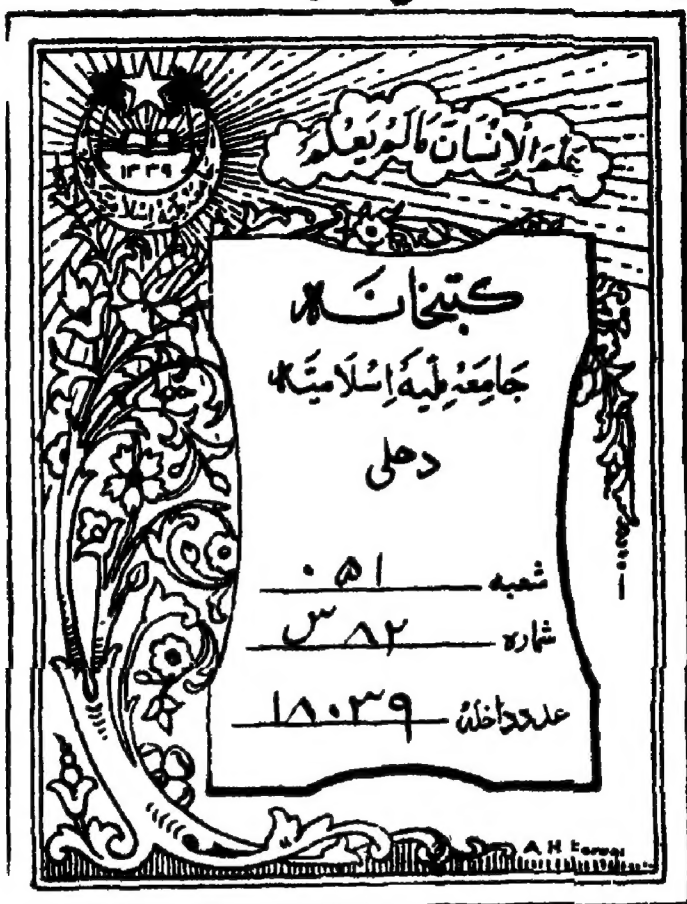 عَلَّمَ الْاِنْسَانَ مَالَمْ يَعْلَمْ
۱۳۳۹
کتبخانہ
جَامِعَہ مِلّیَہ اِسْلَامیَّہ
دھلی
شعبہ ۰۵۱
شمارہ ۸۲ س
عدد داخلہ ۱۸۰۳۹
A. H.